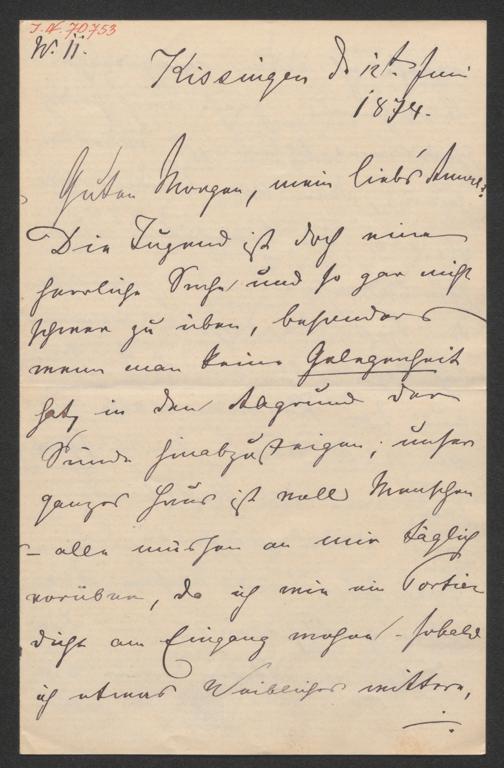 I.N. 70.753
N. 11.
Kissingen d 12t. Juni
1874.
Guten Morgen, mein lieb's
Die Tugend ist doch eine
herrliche Sache und so gar nicht
schwer zu üben, besonders
wenn man keine Gelegenheit
hat, in den Abgrund der
Sünde hinabzusteigen; unser
ganzes Haus ist voll Menschen
– alle müssen an mir täglich
vorüber, da ich wie ein Portier
dicht am Eingang wohne – sobald
ich etwas Weibliches wittere,